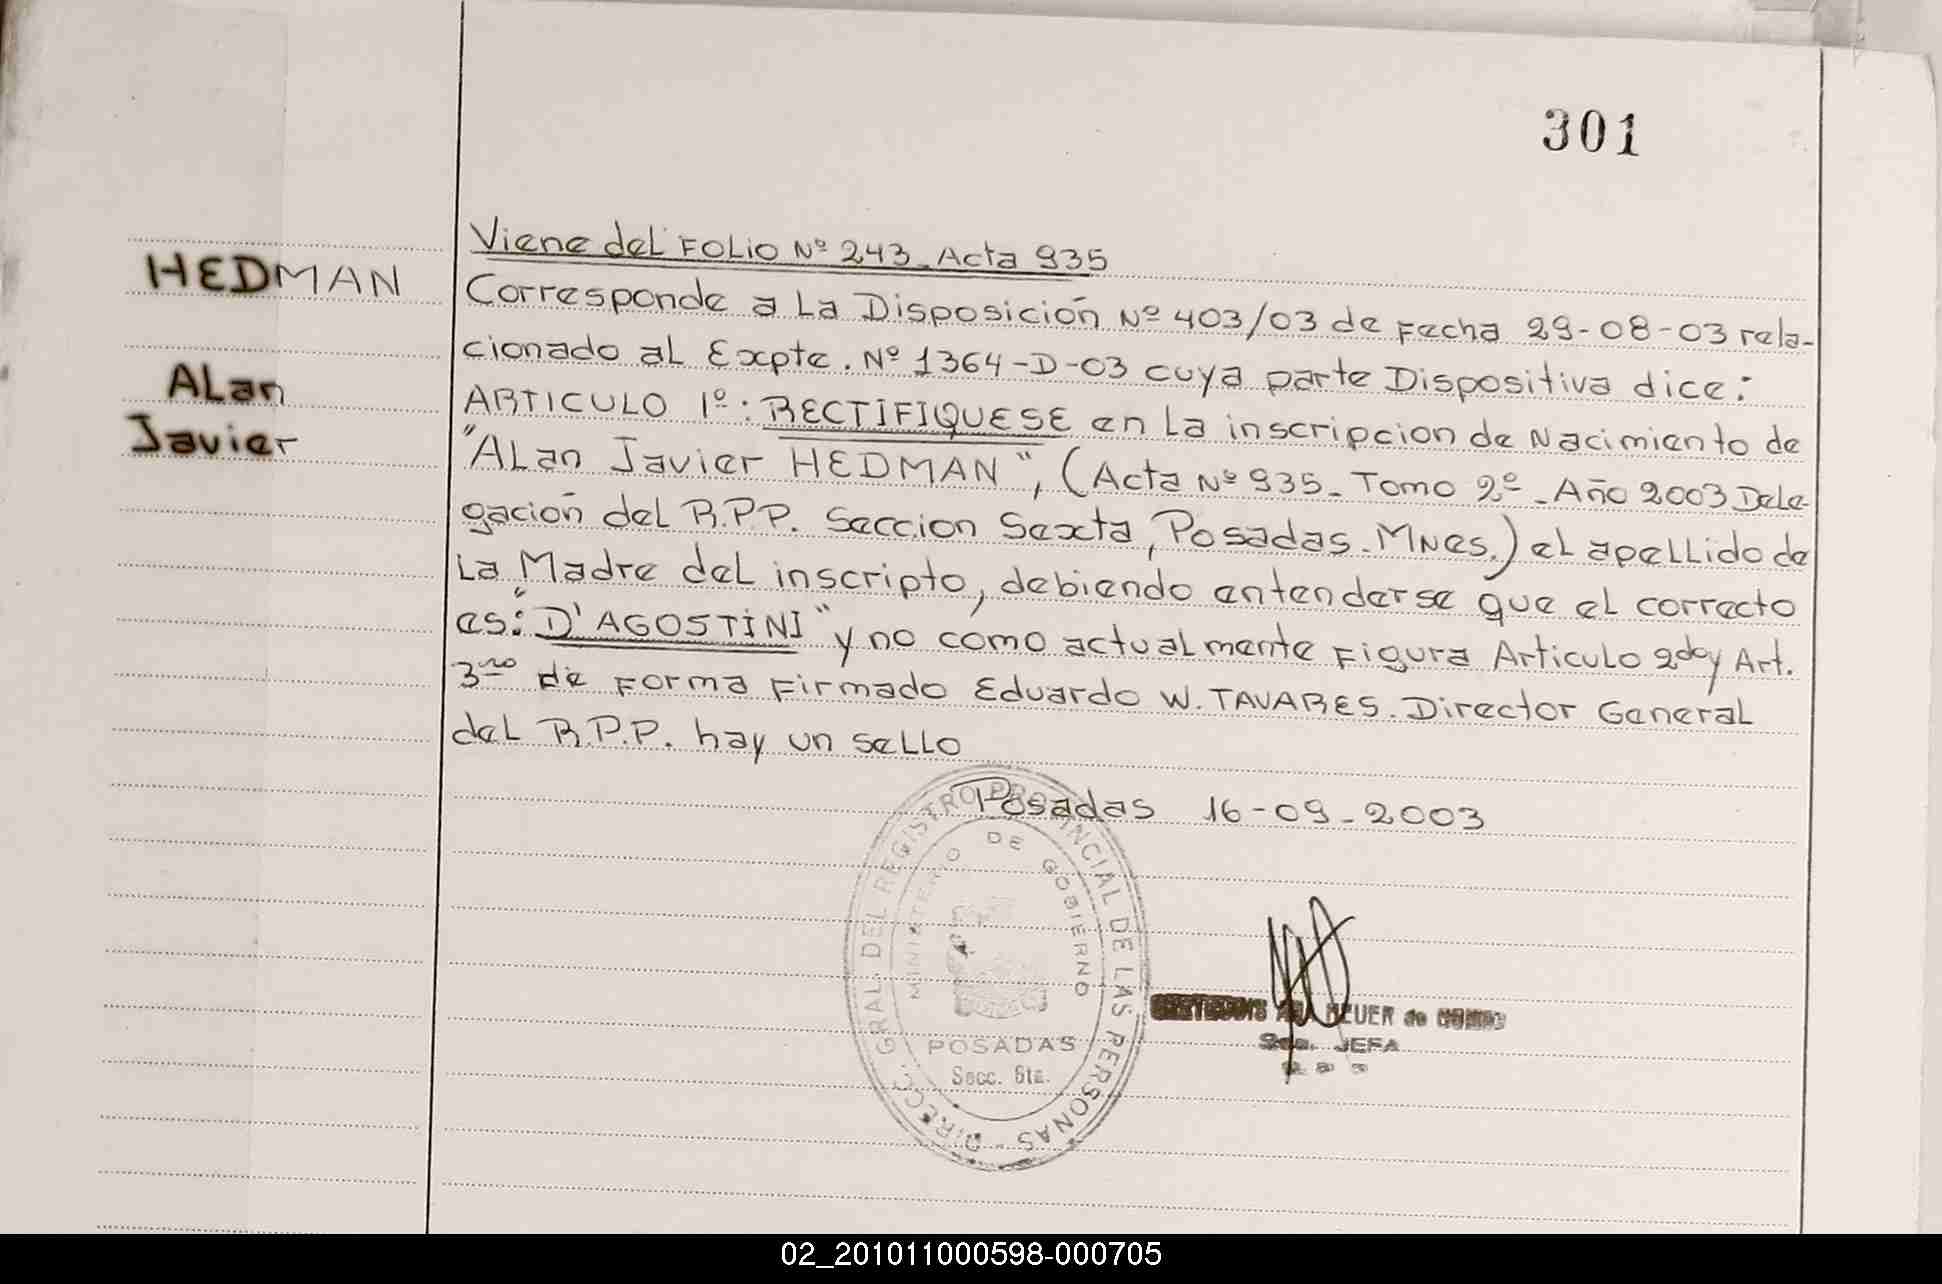 301
HEDMAN
ALan
Javier
Viene del FOLIO Nº 243_Acta 935
Corresponde a La Disposición Nº 403/03 de Fecha 29-08-03 rela-
cionado al Expte. Nº 1364-D-03 cuya parte Dispositiva dice:
ARTICULO 1º: RECTIFIQUESE en La inscripcion de Nacimiento de
"ALan Javier HEDMAN", (Acta Nº 935_ Tomo 2º_Año 2003 Dele-
gación del R.P.P. Seccion Sexta, Posadas_Mnes.) el apellido de
La Madre del inscripto, debiendo entenderse que el correcto
es: "D'AGOSTINI" y no como actualmente Figura Articulo 2do y Art.
3ro de Forma Firmado Eduardo W. TAVARES. Director General
del R.P.P. hay un sello
Posadas 16-09-2003
DIRECC. GRAL. DEL REGISTRO PROVINCIAL DE LAS PERSONAS
MINISTERIO DE GOBIERNO
POSADAS
Secc. 6ta.
de
JEFA
02_201011000598-000705